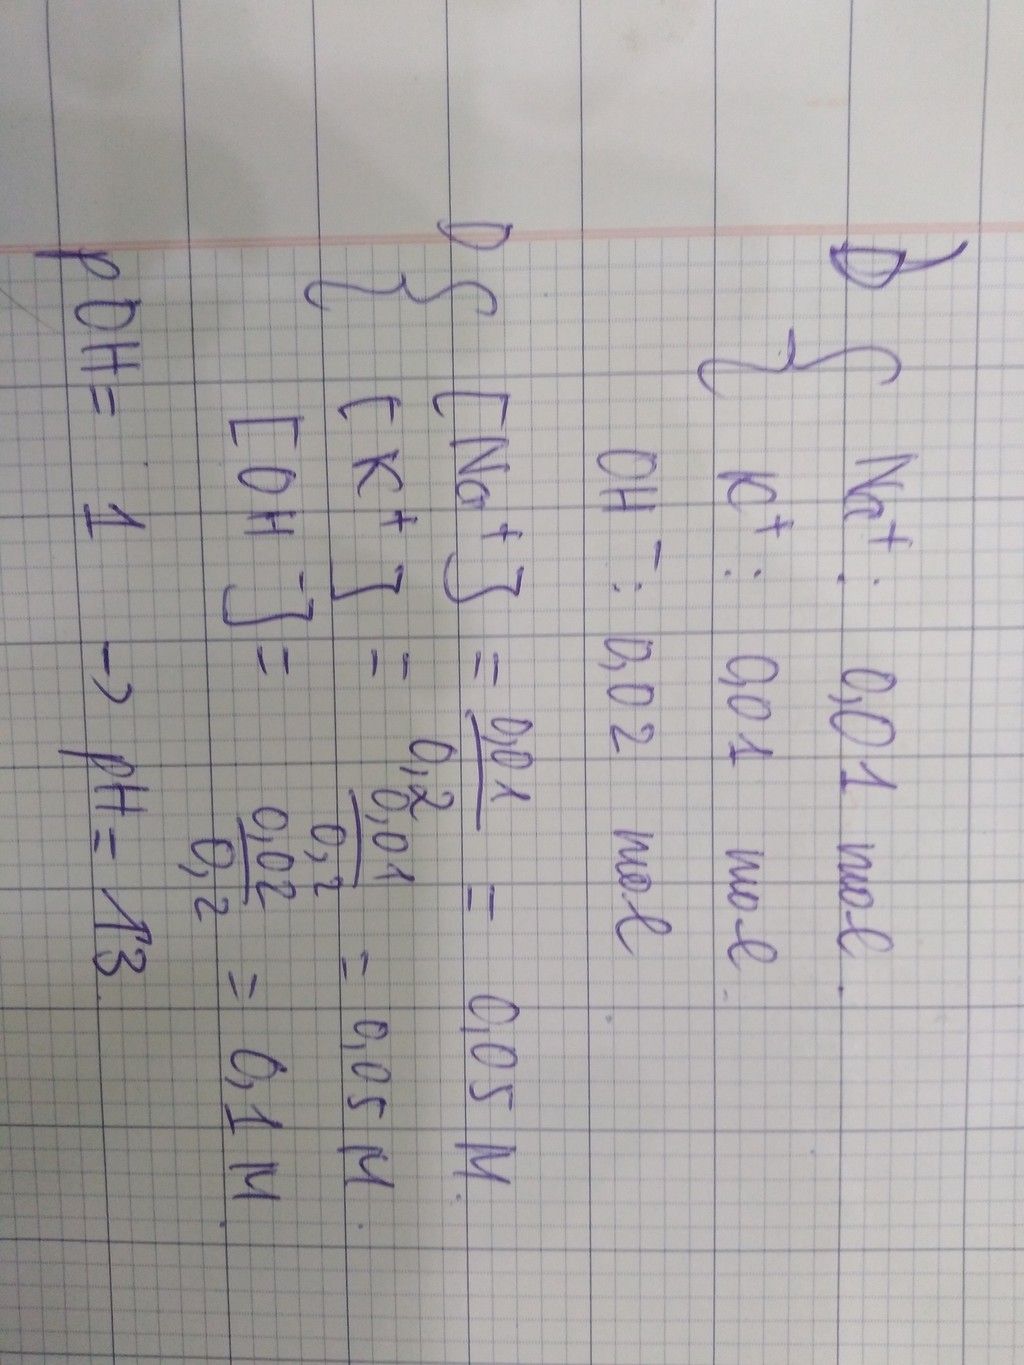 D { Na⁺: 0,01 mol.
K⁺: 0,01 mol
OH⁻: 0,02 mol
D { [Na⁺] = 0,01/0,2 = 0,05 M.
[K⁺] = 0,01/0,2 = 0,05 M.
[OH⁻] = 0,02/0,2 = 0,1 M
pOH = 1 → pH = 13